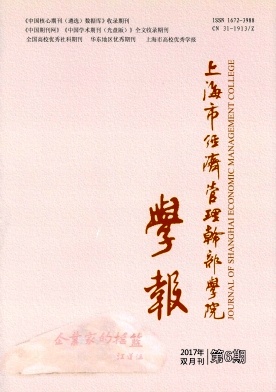 《中国核心期刊(遴选)数据库》收录期刊
《中国期刊网》《中国学术期刊(光盘版)》全文收录期刊
全国高校优秀社科期刊 华东地区优秀期刊 上海市高校优秀学报
ISSN 1672-3988
CN 31-1913/Z
上海市经濟管理幹部學院
JOURNAL OF SHANGHAI ECONOMIC MANAGEMENT COLLEGE
學報
企業家的摇籃
2017年
双月刊
第6期